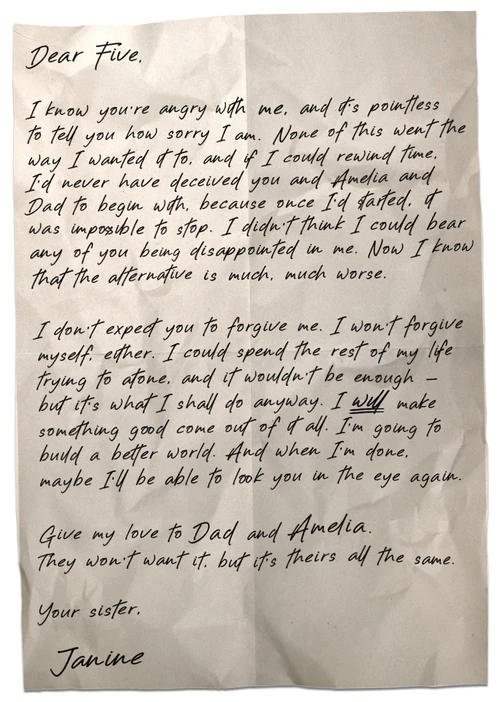 Dear Five,
I know you're angry with me, and it's pointless
to tell you how sorry I am. None of this went the
way I wanted it to, and if I could rewind time,
I'd never have deceived you and Amelia and
Dad to begin with, because once I'd started, it
was impossible to stop. I didn't think I could bear
any of you being disappointed in me. Now I know
that the alternative is much, much worse.
I don't expect you to forgive me. I won't forgive
myself, either. I could spend the rest of my life
trying to atone, and it wouldn't be enough –
but it's what I shall do anyway. I will make
something good come out of it all. I'm going to
build a better world. And when I'm done,
maybe I'll be able to look you in the eye again.
Give my love to Dad and Amelia.
They won't want it, but it's theirs all the same.
Your sister,
Janine